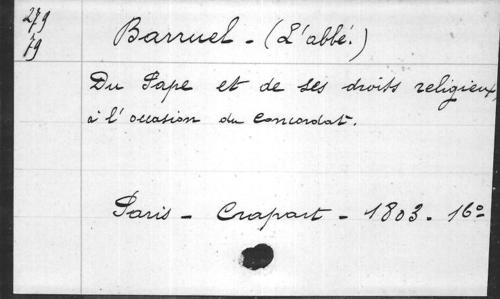 279
79
Barruel - (L'abbé.)
Du Pape et de ses droits religieux,
à l'occasion du concordat.
Paris - Crapart - 1803 - 16º